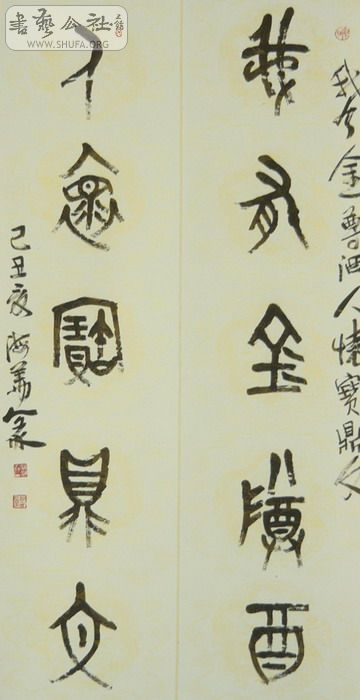 書藝公社
WWW.SHUFA.ORG
我有金尊酒人懷寶鼎文
我有金尊酒
人懷寶鼎文
己丑夏海篆